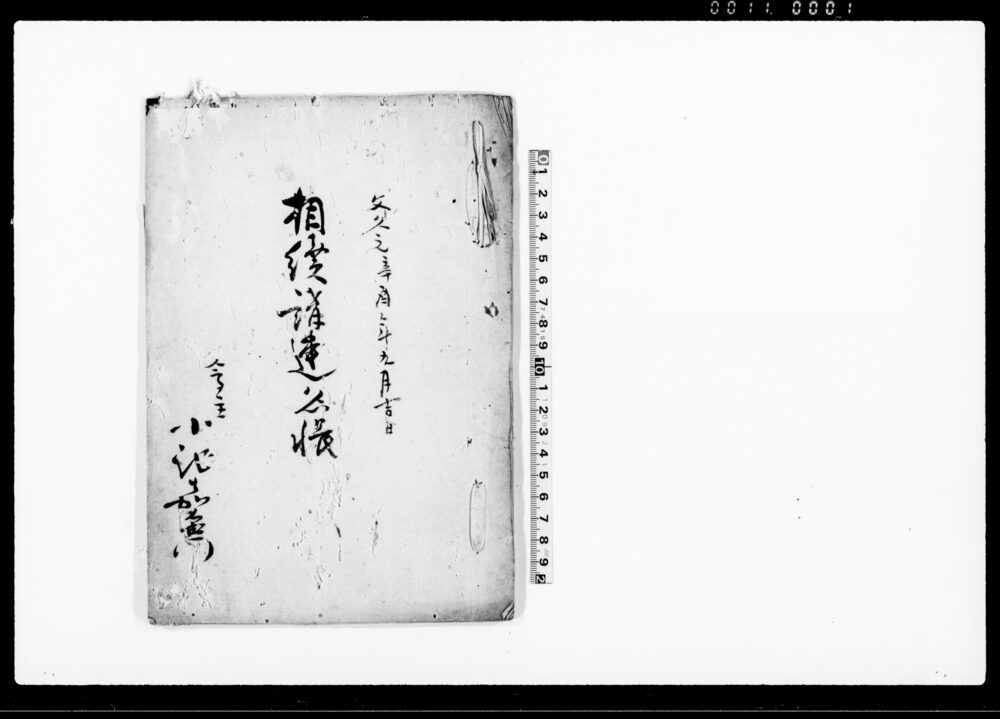 0011 0001
文久元辛酉年九月吉日
相續講連名帳
会主
小沢嘉
0 1 2 3 4 5 6 7 8 9 10 1 2 3 4 5 6 7 8 9 2